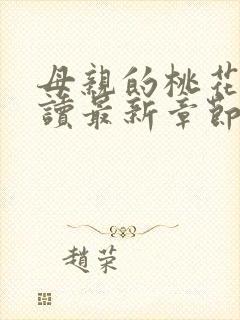 母親的桃花
讀最新章節
趙荣